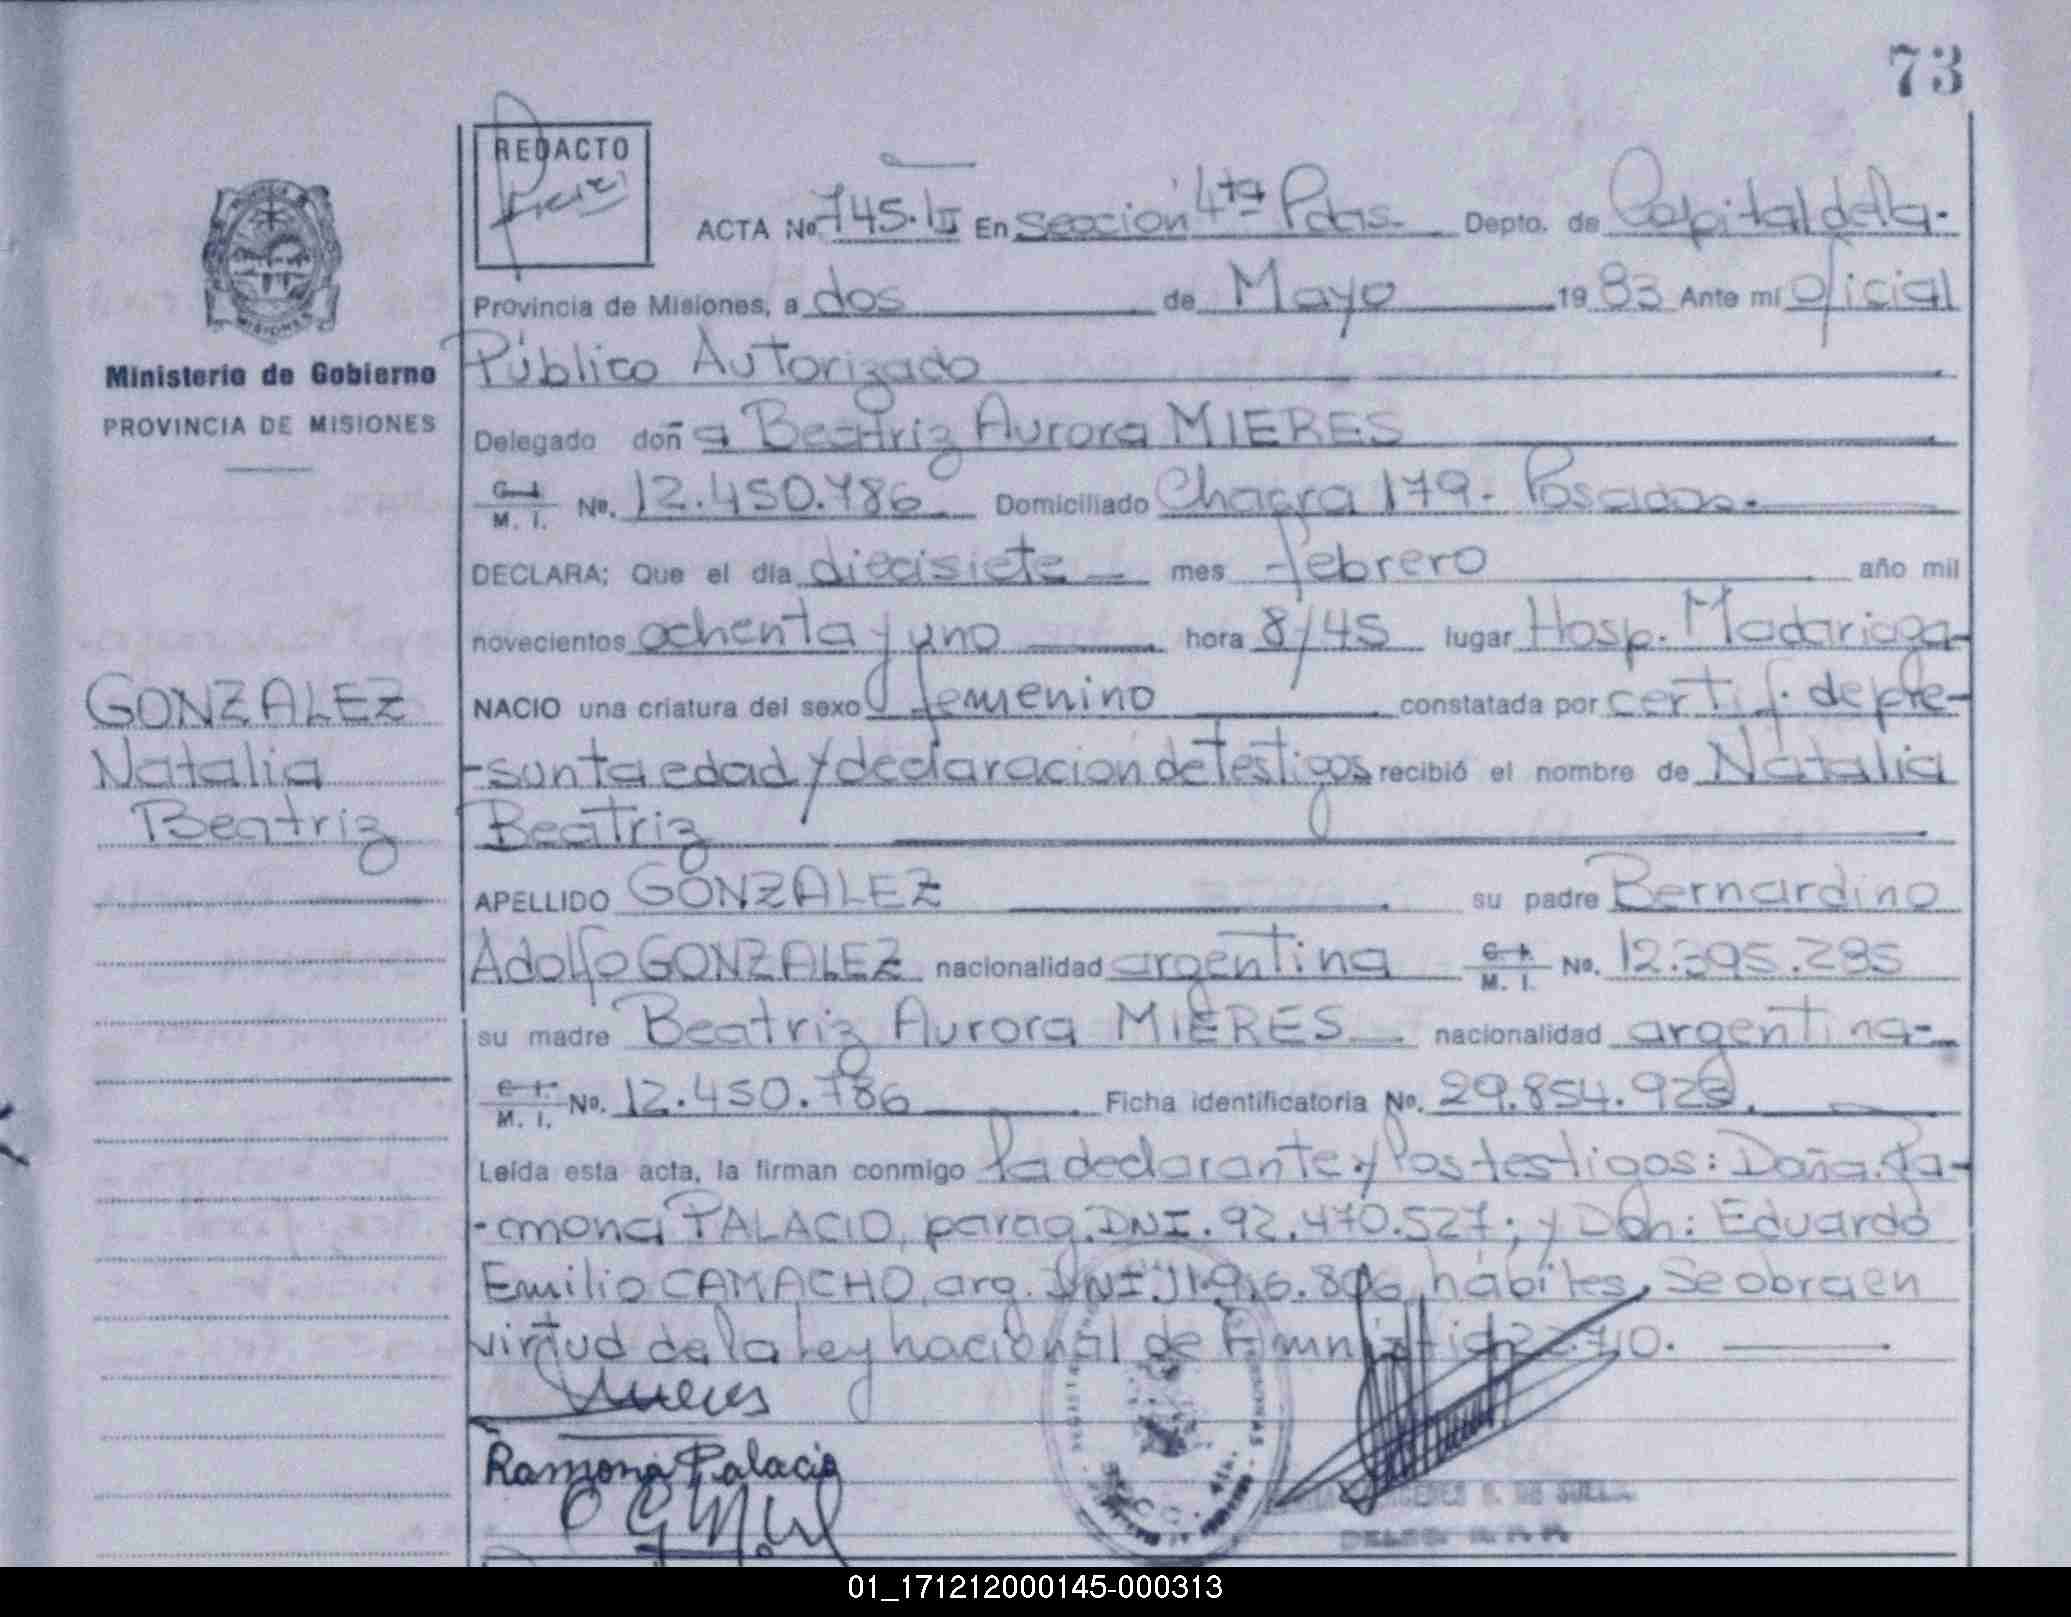 73
REDACTO
ACTA No 745.III En Sección 4ta Pdas. Depto. de Capital de la.
Provincia de Misiones, a dos de Mayo 1983 Ante mí Oficial
Ministerio de Gobierno
Público Autorizado
PROVINCIA DE MISIONES
Delegado doña Beatriz Aurora MIERES
M. I. No. 12.450.786 Domiciliado Chacra 179- Posadas.
DECLARA; Que el día diecisiete mes febrero año mil
novecientos ochenta y uno hora 8/45 lugar Hosp. Madariaga-
GONZALEZ
NACIO una criatura del sexo femenino constatada por certif. de pre-
Natalia
-sunta edad y declaracion de Testigos recibió el nombre de Natalia
Beatriz
Beatriz
APELLIDO GONZALEZ su padre Bernardino
Adolfo GONZALEZ nacionalidad argentina M. I. No. 12.395.285
su madre Beatriz Aurora MIERES nacionalidad argentina-
M. I. No. 12.450.786 Ficha identificatoria No. 29.854.923.
Leída esta acta, la firman conmigo la declarante y los testigos: Doña. Ra-
-amona PALACIO, parag. DNI. 92.470.527; y Don: Eduardo
Emilio CAMACHO, arg. DNI hábiles. Se obra en
virtud de la Ley nacional de Amnistia 22.710.
Mieres
Ramona Palacio
01_171212000145-000313